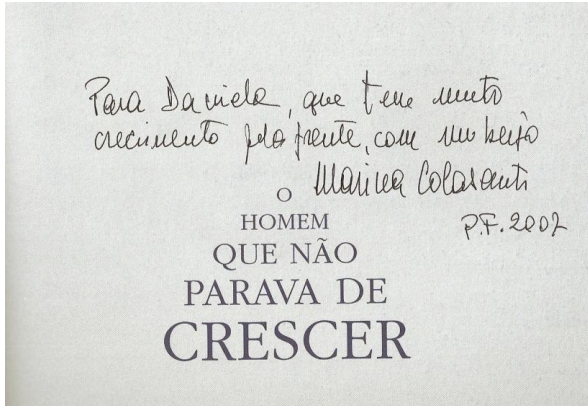 Para Daniela, que tem muito
crescimento pela frente, com um beijo
Marina Colasanti
P.F. 2002
O
HOMEM
QUE NÃO
PARAVA DE
CRESCER